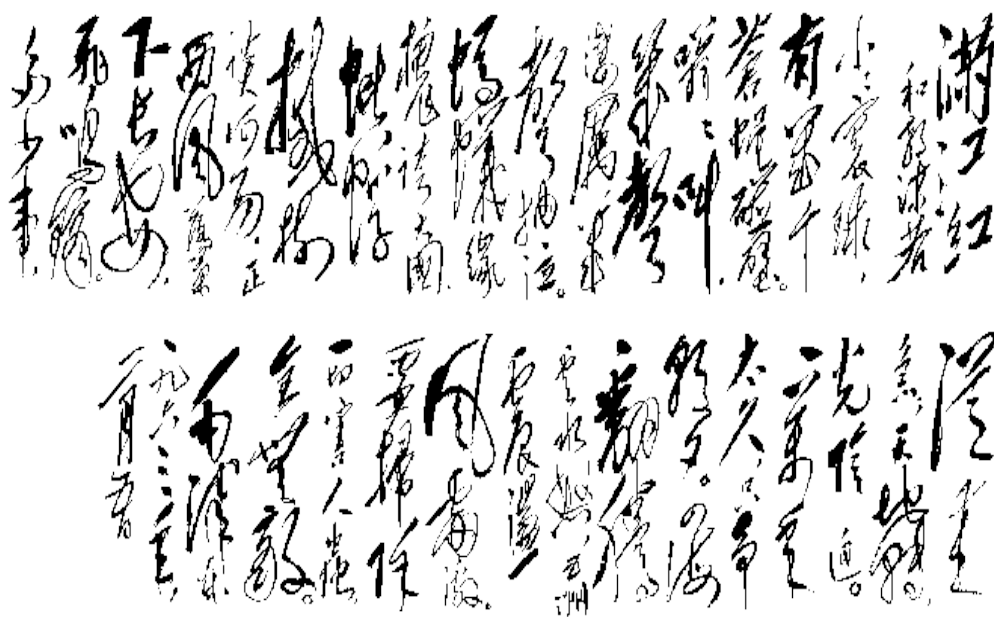 满江红
和郭沫若
小小寰球,
有幾个
苍蝇碰壁。
嗡嗡叫,
幾聲
凄厉,幾
聲抽泣。
蚂蟻缘
槐誇大國,
蚍蜉
撼树
谈何易。正
西风落葉
下长安,
飛鳴鏑。
多少事,
從来
急;天地转,
光陰迫。
一萬年
太久,只争
朝夕。四海
翻騰
雲水怒,五洲
震盪
風雷激。
要掃除
一切害人虫,
全無敵。
毛澤东
一九六三年
二月五日